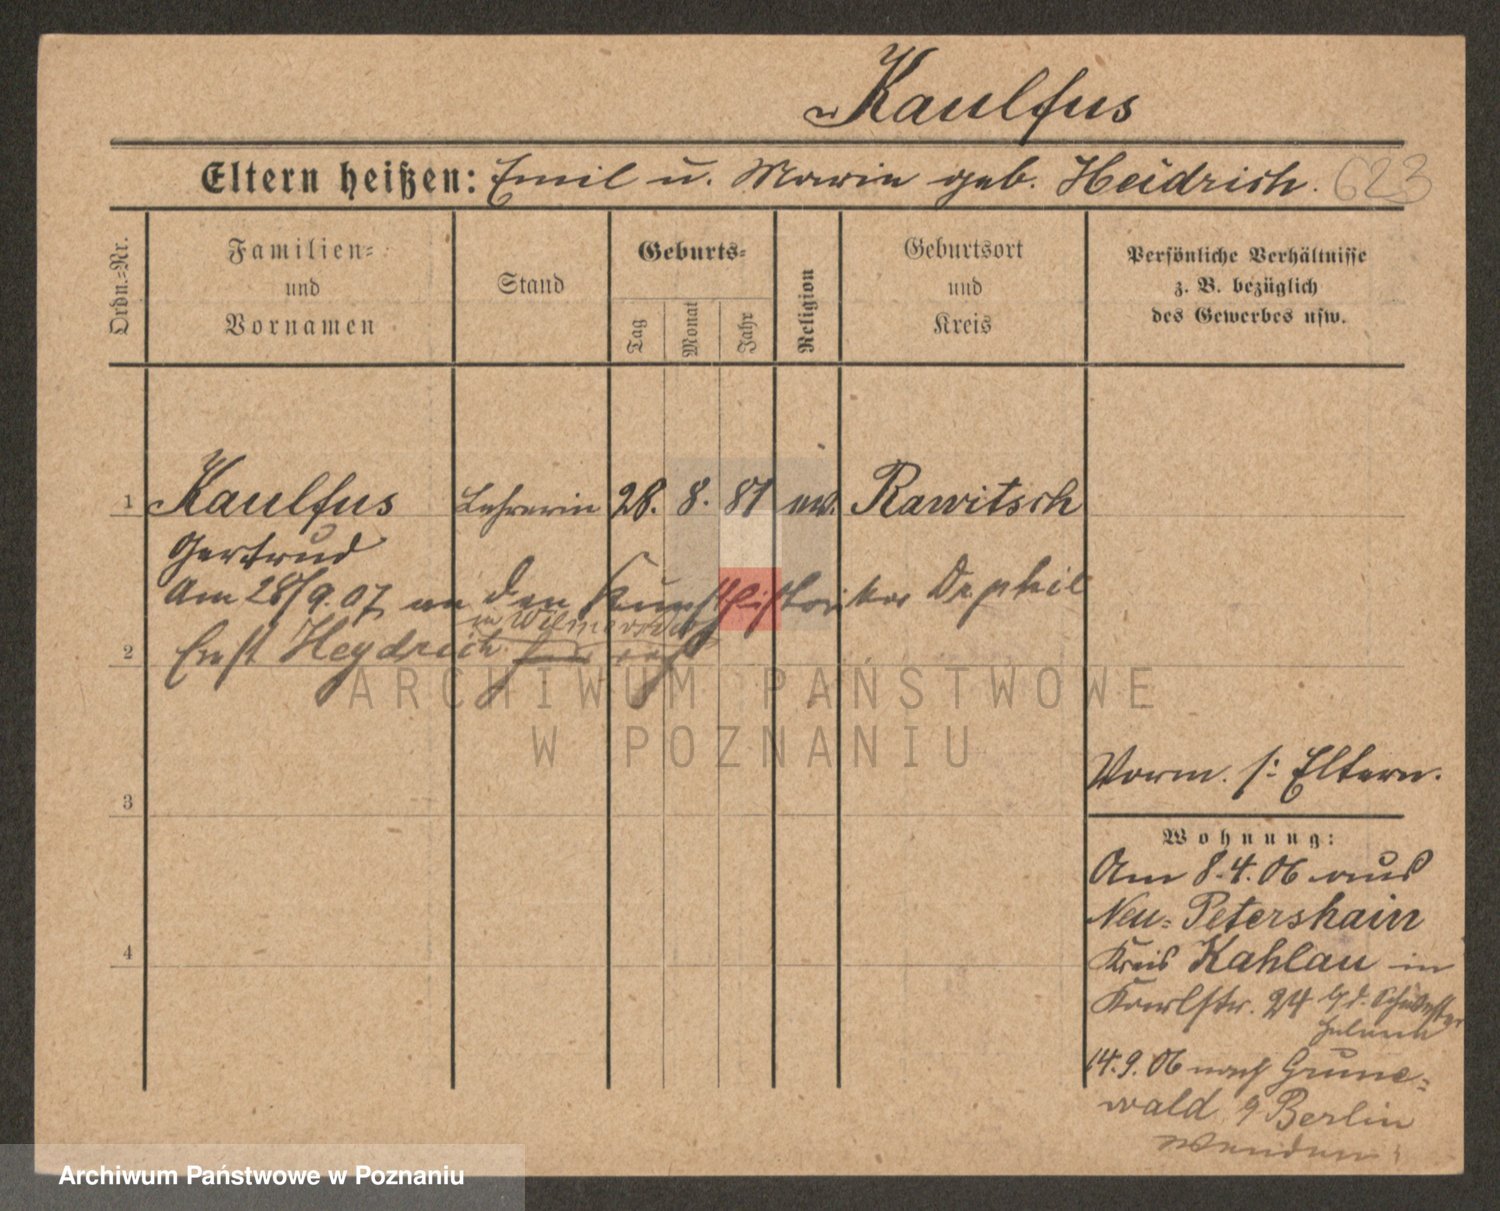 Kaulfus
Eltern heißen: Emil u. Marie geb. Heidrich. 623
Ordn.=Nr.
Familien=
und
Vornamen
Stand
Geburts=
Tag
Monat
Jahr
Religion
Geburtsort
und
Kreis
Persönliche Verhältnisse
z. B. bezüglich
des Gewerbes usw.
1 Kaulfus Lehrerin 28. 8. 81 ev. Rawitsch
Gertrud
Am 28/9.07 an den Kunsthistoriker Dr phil
in Wilmersdorf
2 Ernst Heydrich
ARCHIWUM PAŃSTWOWE
W POZNANIU
Vorm. s: Eltern.
3
Wohnung:
Am 8.4.06 aus
Neu=Petershain
4 Kreis Kahlau in
Karlstr. 24 b/d. Schwester
Helene
14.9.06 nach Grune=
wald b/Berlin
Archiwum Państwowe w Poznaniu